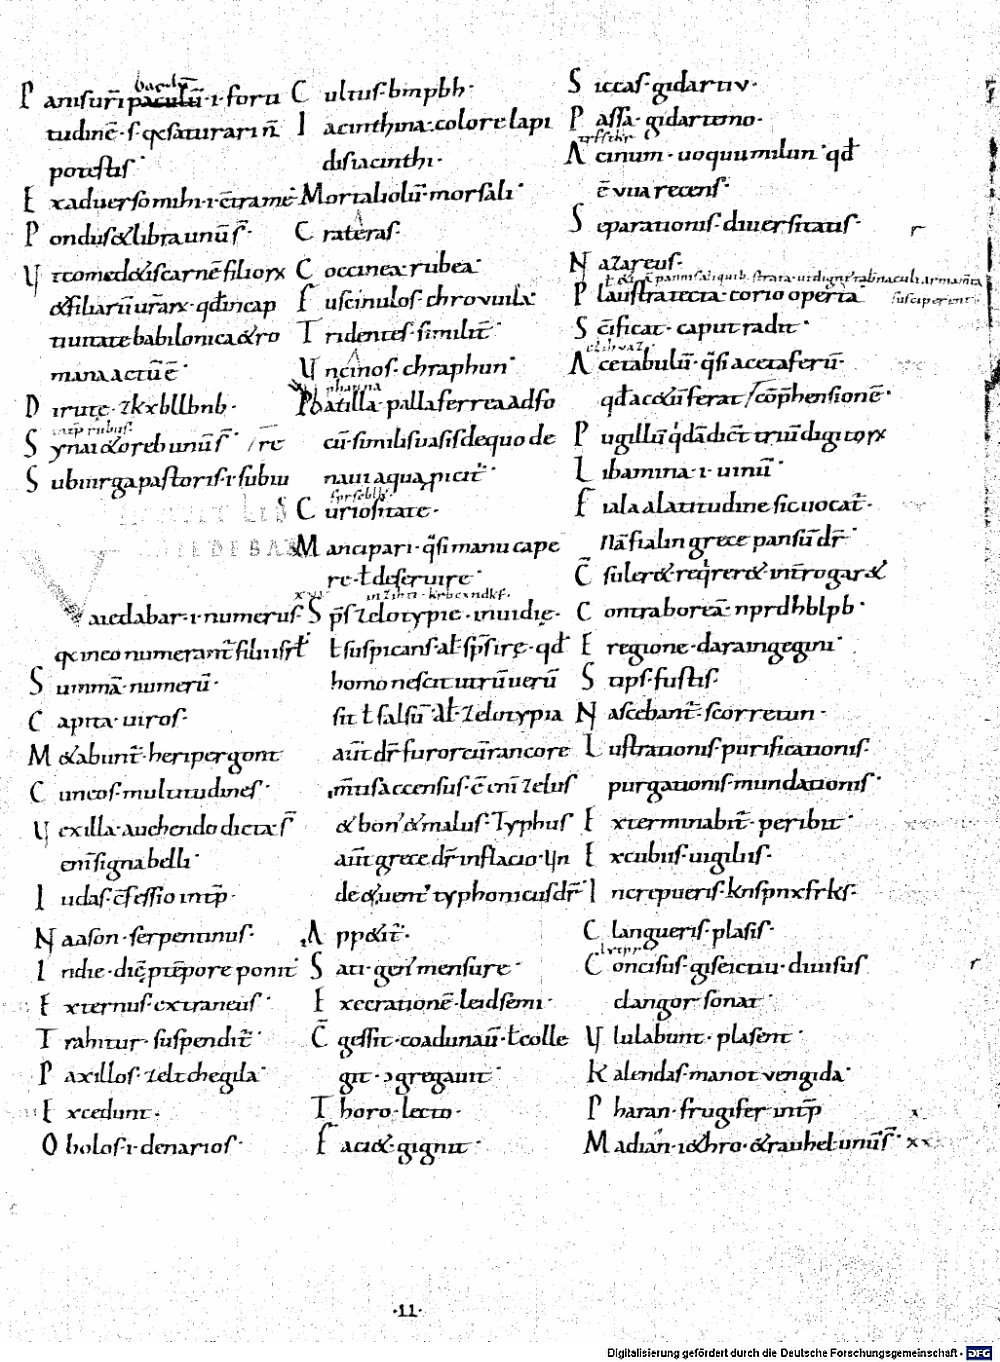 baculū
P anisuir̄i paculū·i·foru
tudinē·ſ·qͥ ſaturari n̄
poteſtiſ·
E xaduerſo mihi·i·c̄trame·
P onduſ &libra unū ſ̄·
V t comed&iſ carnē filiorx
&filiarū urārx·qđ incap
tiuitate babilonica &ro
mana actū ē·
D irutę·zkxbllbnb·
int̄p rubuſ·
S ynai &oreb unū ſ̄· re
S ub uirga paſtoriſ·i·ſubiu
V aiedabar·i·numeruſ·
qͥ in eo numerant̄ filii iſrł
S ummā·numerū·
C apita·uiroſ·
M &abunt̄·heripergont
C uneoſ·multitudineſ·
V exilla·auehendo dicta ſ̄
eni ſigna belli·
I udaſ·c̄feſſio int̄p·
N aaſon·ſerpentinuſ·
I ndie·dic̄ p̄tēpore ponit·
E xternuſ·extraneuſ·
T rahitur·ſuſpendit̄·
P axilloſ·zeltchegila·
E xcedunt·
O boloſ·i·denarioſ·
C ultuſ·bmpbh·
I acinthina·colore lapi
diſ iacinthi·
M ortaliolū·morſali·
C rateraſ·
C occinea·rubea·
F uſcinuloſ·chrovuila·
T ridenteſ·ſimilit̄·
V ncinoſ·chraphun·
phanna
B atilla·palla ferrea adfo
cū·ſimiliſ uaſiſ dequo de
naui aqua picit̄·
fprſcblk·
C urioſitate·
M ancipari·qͣſi manu cape
re·ł deſeruire·
xvi
S p̄ſ zelotypię·inuidię·
ł ſuſpicanſ·ał·ſp̄ſ irę·qđ
homo neſcit utrū uerū
ſit ł falſū·Ał·zelotypia
aūt dr̄ furor cū rancore
m̄tiſ accenſuſ·ē eni zeluſ
&bon' &maluſ·Typhuſ
aūt grece dr̄ inflatio·Vn
de &uent' typhonicuſ dr̄·
A pp&it̄·
S ati·gen' menſure·
E xecrationē·leidſemi·
C̄ geſſit·coadunau̅·ł colle
git·ɔgregauit·
T horo·lecto·
F aci&·gignit·
S iccaſ·gidartiv·
P aſſa·gidartemo·
A cinum·uoquumilun·qđ
ē vua recenſ·
S eparationiſ·diuerſitatiſ·
N azareuſ·
P lauſtra tecta·corio operta
ſuſciperent·
S c̄ificat·caput radit·
A cetabulū·qͣſi acetaferū·
qđ acetū ferat/cōp̄henſionē·
P ugillū qͥdā dic̄t triū digitorx
L ibamina·i·uinū·
F iala alatitudine ſic uocat̄·
Nā fialin grece panſū dr̄·
C̄ ſuler&·req̄rer&·int̄rogar&
C ontraboreā·nprdhblpb·
E regione·daraingegini·
S tipſ·fuſtiſ·
N aſcebant̄·ſcorretun·
L uſtrationiſ·purificationiſ·
purgationiſ·mundationiſ·
E xterminabit̄·peribit·
E xcubiiſ·uigiliiſ·
I ncrepueriſ·knſpnxfrkſ·
C langueriſ·plaſiſ·
C onciſuſ·giſeictiu·diuiſuſ
clangor ſonat·
V lulabunt·plaſent·
K alendaſ·manot vengida·
P haran·frugifer int̄p
M adian·i&hro·&rauhel·unūſ̄· xx
·11·
Digitalisierung gefördert durch die Deutsche Forschungsgemeinschaft - DFG